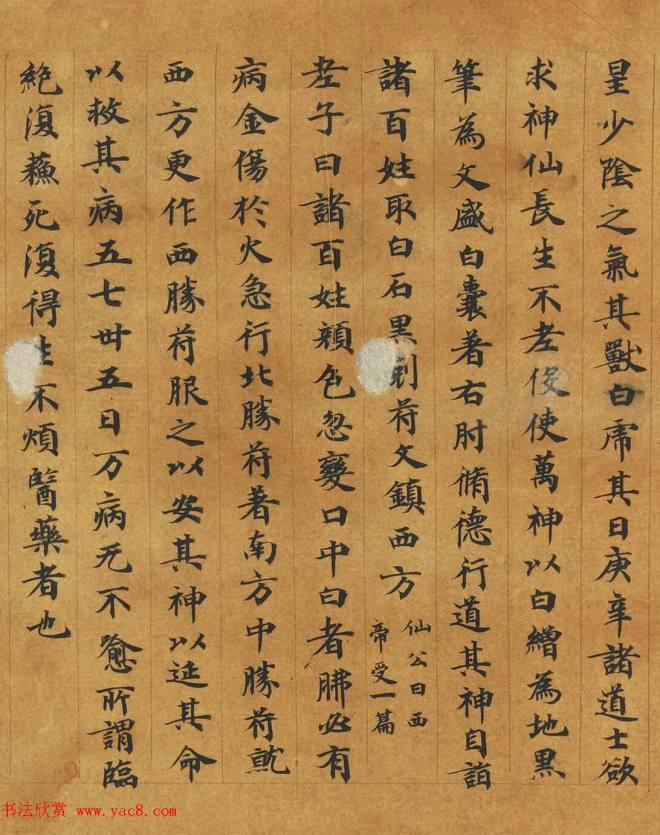 星少陰之氣其獸白虎其日庚辛諸道士欲
求神仙長生不老役使萬神以白繒為地黑
筆為文盛白囊著右肘脩德行道其神自詣
諸百姓取白石黑刻苻文鎮西方
仙公曰西
帝受一篇
老子曰諸百姓顏色忽變口中白者肺必有
病金傷於火急行北勝苻著南方中勝苻就
西方更作西勝苻服之以安其神以延其命
以救其病五七卅五日万病无不愈所謂臨
絕復蘇死復得生不煩醫藥者也
书法欣赏 www.yac8.com